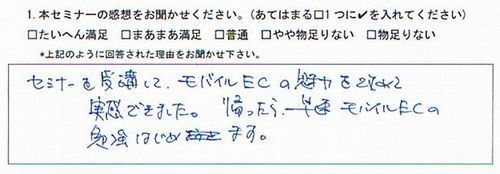 1. 本セミナーの感想をお聞かせください。(あてはまる□1つに✔を入れてください)
□たいへん満足 □まあまあ満足 □普通 □やや物足りない □物足りない
*上記のように回答された理由をお聞かせ下さい。
セミナーを受講して、モバイルECの魅力を改めて
実感できました。帰ったら、早速モバイルECの
勉強はじめます。